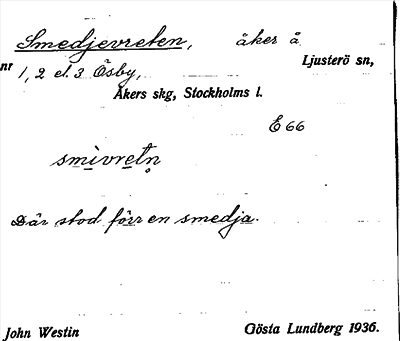 Smedjevreten, åker å
Ljusterö sn,
nr 1, 2 el. 3 Ösby,
Åkers skg, Stockholms l.
E 66
smivretn̥
Där stod förr en smedja.
John Westin
Gösta Lundberg 1936.